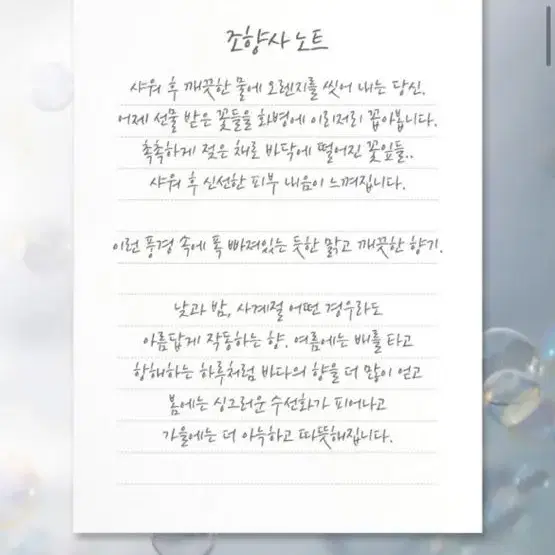 조향사 노트
샤워 후 깨끗한 물에 오렌지를 씻어 내는 당신.
어제 선물 받은 꽃들을 화병에 이리저리 꼽아봅니다.
촉촉하게 젖은 채로 바닥에 떨어진 꽃잎들..
샤워 후 신선한 피부 내음이 느껴집니다.
이런 풍경 속에 폭 빠져있는 듯한 맑고 깨끗한 향기.
낮과 밤, 사계절 어떤 경우라도
아름답게 작동하는 향. 여름에는 배를 타고
항해하는 하루처럼 바다의 향을 더 많이 얻고
봄에는 싱그러운 수선화가 피어나고
가을에는 더 아늑하고 따뜻해집니다.